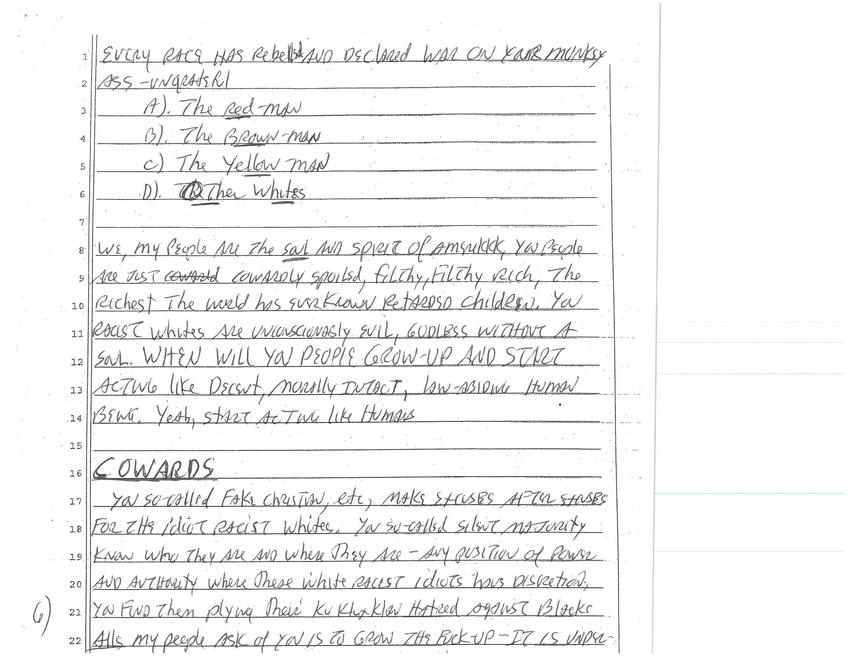 1 EVERY RACE HAS Rebelled AND DEClAREd WAR ON YOUR MONKEY
2 ASS -
3 A). The Red-MAN
4 B). The BROWN-MAN
5 C) The Yellow MAN
6 D). OTher Whites
7
8 WE, my People ARE The soul AND SPIRIT OF AmeriKKK, You People
9 ARE JUST COWARDLY spoiled, filThy, FilThy Rich, The
10 RichesT The world has EVER KNOWN RETARDED ChildREN. You
11 RACIST Whites ARE UNCONSCIONABLY EVIL, GODLESS WITHOUT A
12 Soul. WHEN WILL YOU PEOPLE GROW-UP AND START
13 ACTING like DECENT, MORALLY INTACT, law-ABIDING HUMAN
14 BEING. Yeah, START ACTING like HUMANS
15
16 COWARDS
17 You so-called FAKE ChrisTIAN, etc, MAKE EXCUSES AFTER EXCUSES
18 FOR THE idioT RACIST Whites. You so-called silent MAJORITY
19 KNOW Who They ARE AND where They ARE - ANY POSITION of POWER
20 AND AUTHORITY where These white RACIST idioTs have DISCRETION,
21 YOU FIND Them plying Their Ku Klux KlaN HATRED AgaiNST Blacks
22 Alls my people ASK of YOU IS TO GROW THE FUCK-UP - IT IS UNDER-
6)